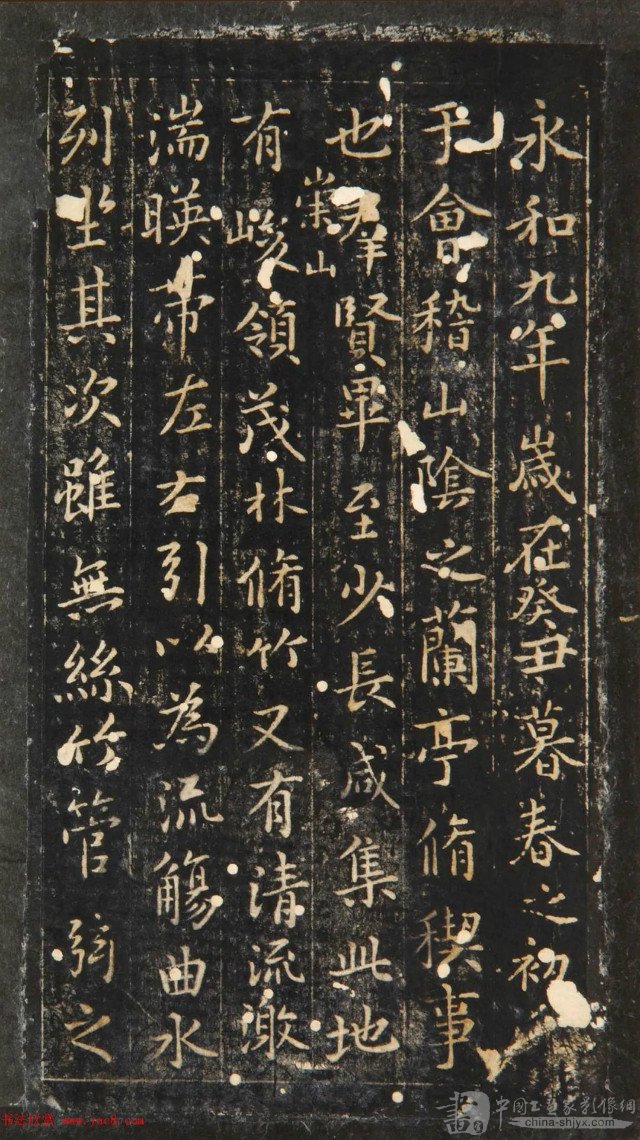 永和九年歲在癸丑暮春之初
于會稽山陰之蘭亭脩稧事
也羣賢畢至少長咸集此地
有崇山峻領茂林脩竹又有清流激
湍暎帶左右引以為流觴曲水
列坐其次雖無絲竹管弦之
書法欣賞 www.yac8.com
書 中國工藝家影像網
china-shjyx.com